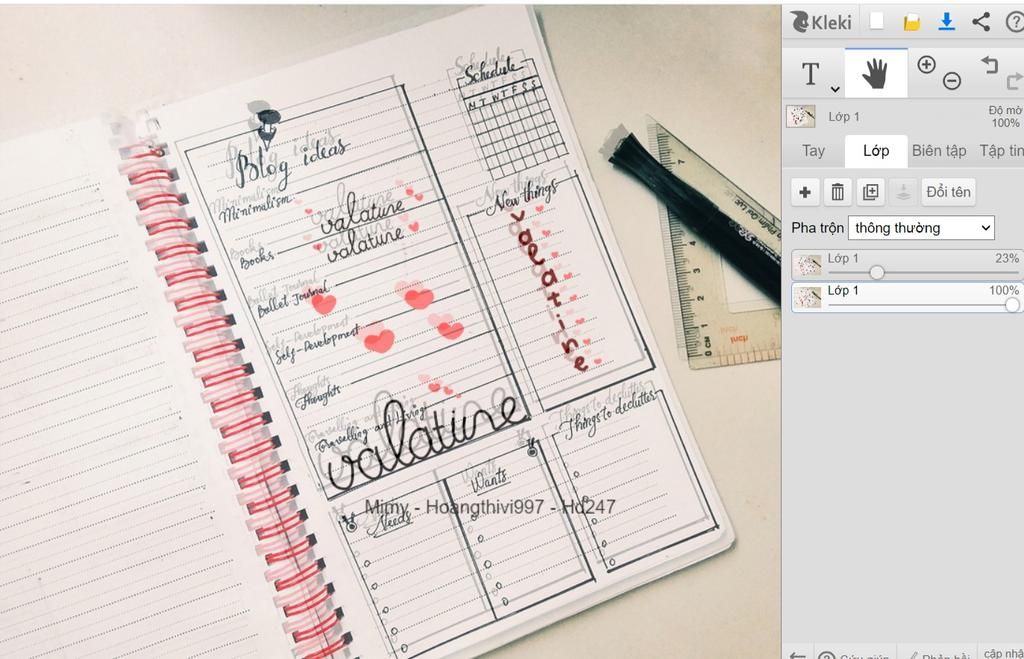 Kleki
T
Lớp 1
Độ mờ
100%
Tay
Lớp
Biên tập
Tập tin
Đổi tên
Pha trộn
thông thường
Lớp 1
23%
Lớp 1
100%
Schedule
M T W T F S S
Blog ideas
Minimalism
valatine
valatine
Books
Bullet Journal
Self-Development
Thoughts
Travelling and Living
valatine
New things
valatine
Things to declutter
Wants
Needs
Mimy - Hoangthivi997 - Hd247
7
3
2
1
0 CM